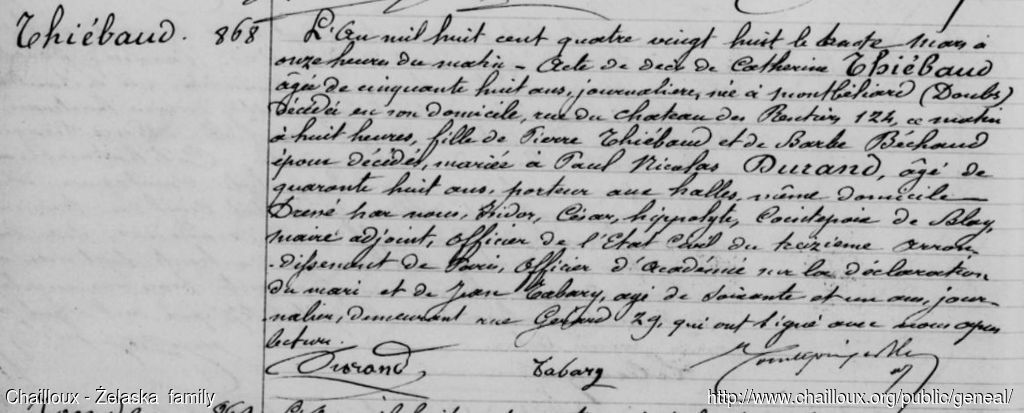 Thiébaud. 868
L'An mil huit cent quatre vingt huit le trente mars à
onze heures du matin - Acte de décès de Catherine Thiébaud
âgée de cinquante huit ans, journalière, née à Montbéliard (Doubs)
décédée en son domicile, rue du chateau des Rentiers 124, ce matin
à huit heures, fille de Pierre Thiébaud et de Barbe Béchaud
époux décédés, mariée à Paul Nicolas Durand, âgé de
quarante huit ans, porteur aux halles, même domicile —
Dressé par nous, Isidor, César, hippolyte, de
maire adjoint, officier de l'Etat Civil du treizième arron
-dissement de Paris, officier d'Académie sur la déclaration
du mari et de Jean Tabary, agé de soixante et un ans, jour-
nalier, demeurant rue Gérard 29, qui ont signé avec nous après
lecture.
Durand Tabary
Chailloux - Żelaska family http://www.chailloux.org/public/geneal/